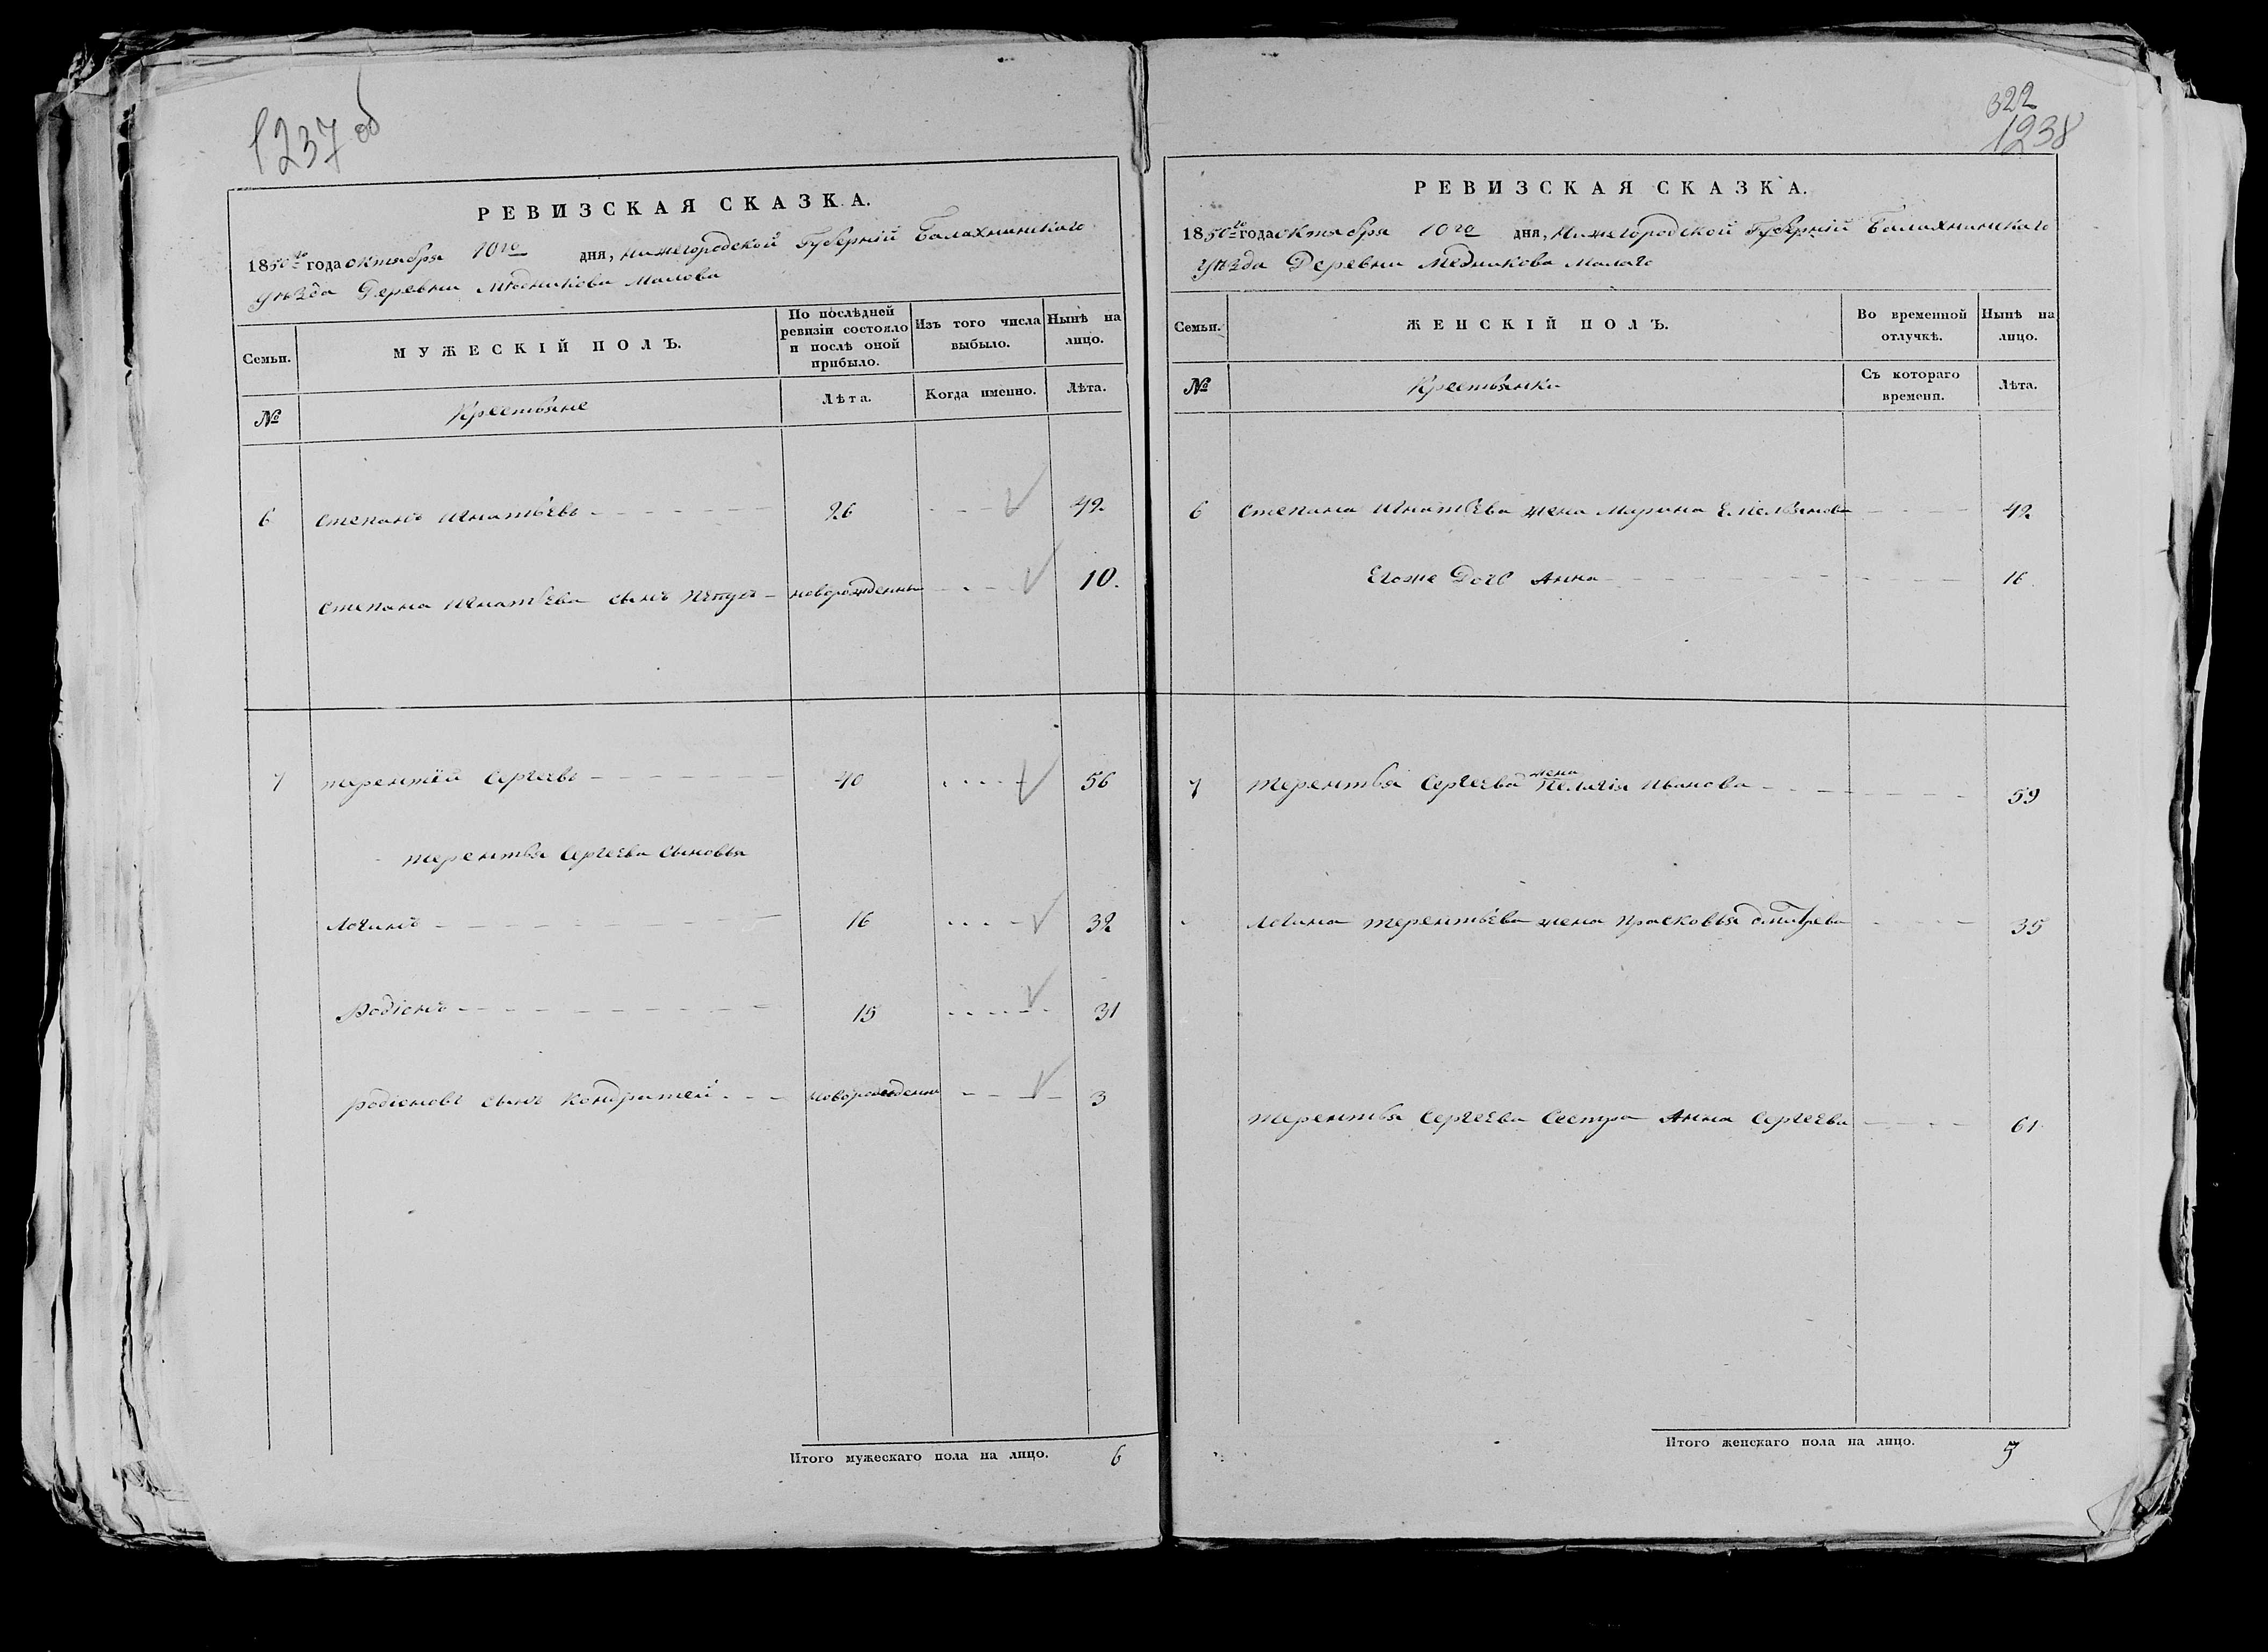 1237 об
РЕВИЗСКАЯ СКАЗКА.
1850го года октября 10го дня, Нижегородской Губерній Балахнинскаго
уѣзда Деревни Мѣдникова Малова
Семьи.
МУЖЕСКІЙ ПОЛЪ.
По послѣдней ревизіи состояло и послѣ оной прибыло.
Изъ того числа выбыло.
Нынѣ на лицо.
№
Крестьяне
Лѣта.
Когда именно.
Лѣта.
6 Степанъ Игнатьевъ 26 42
Степана Игнатьева сынъ новорожденны 10.
7 терентей Сергеевъ 40 56
терентья Сергеева сыновья
Логинъ 16 32
Родіонъ 15 31
родіоновъ сынъ Кондратей новорожденны 3
Итого мужескаго пола на лицо. 6
322
1238
РЕВИЗСКАЯ СКАЗКА.
1850го года октября 10го дня, Нижегородской Губерній Балахнинскаго
уѣзда Деревни Медникова Малаго
Семьи.
ЖЕНСКІЙ ПОЛЪ.
Во временной отлучкѣ.
Нынѣ на лицо.
№
Крестьянки
Съ котораго времени.
Лѣта.
6 Степана Игнатьева жена Марина Емельянова 42
Егоже Дочь Анна 16
7 терентья Сергеева жена Пелагія Иванова 59
Логина терентьева жена Прасковья дмитрева 35
терентья Сергеева Сестра Анна Сергеева 61
Итого женскаго пола на лицо. 5